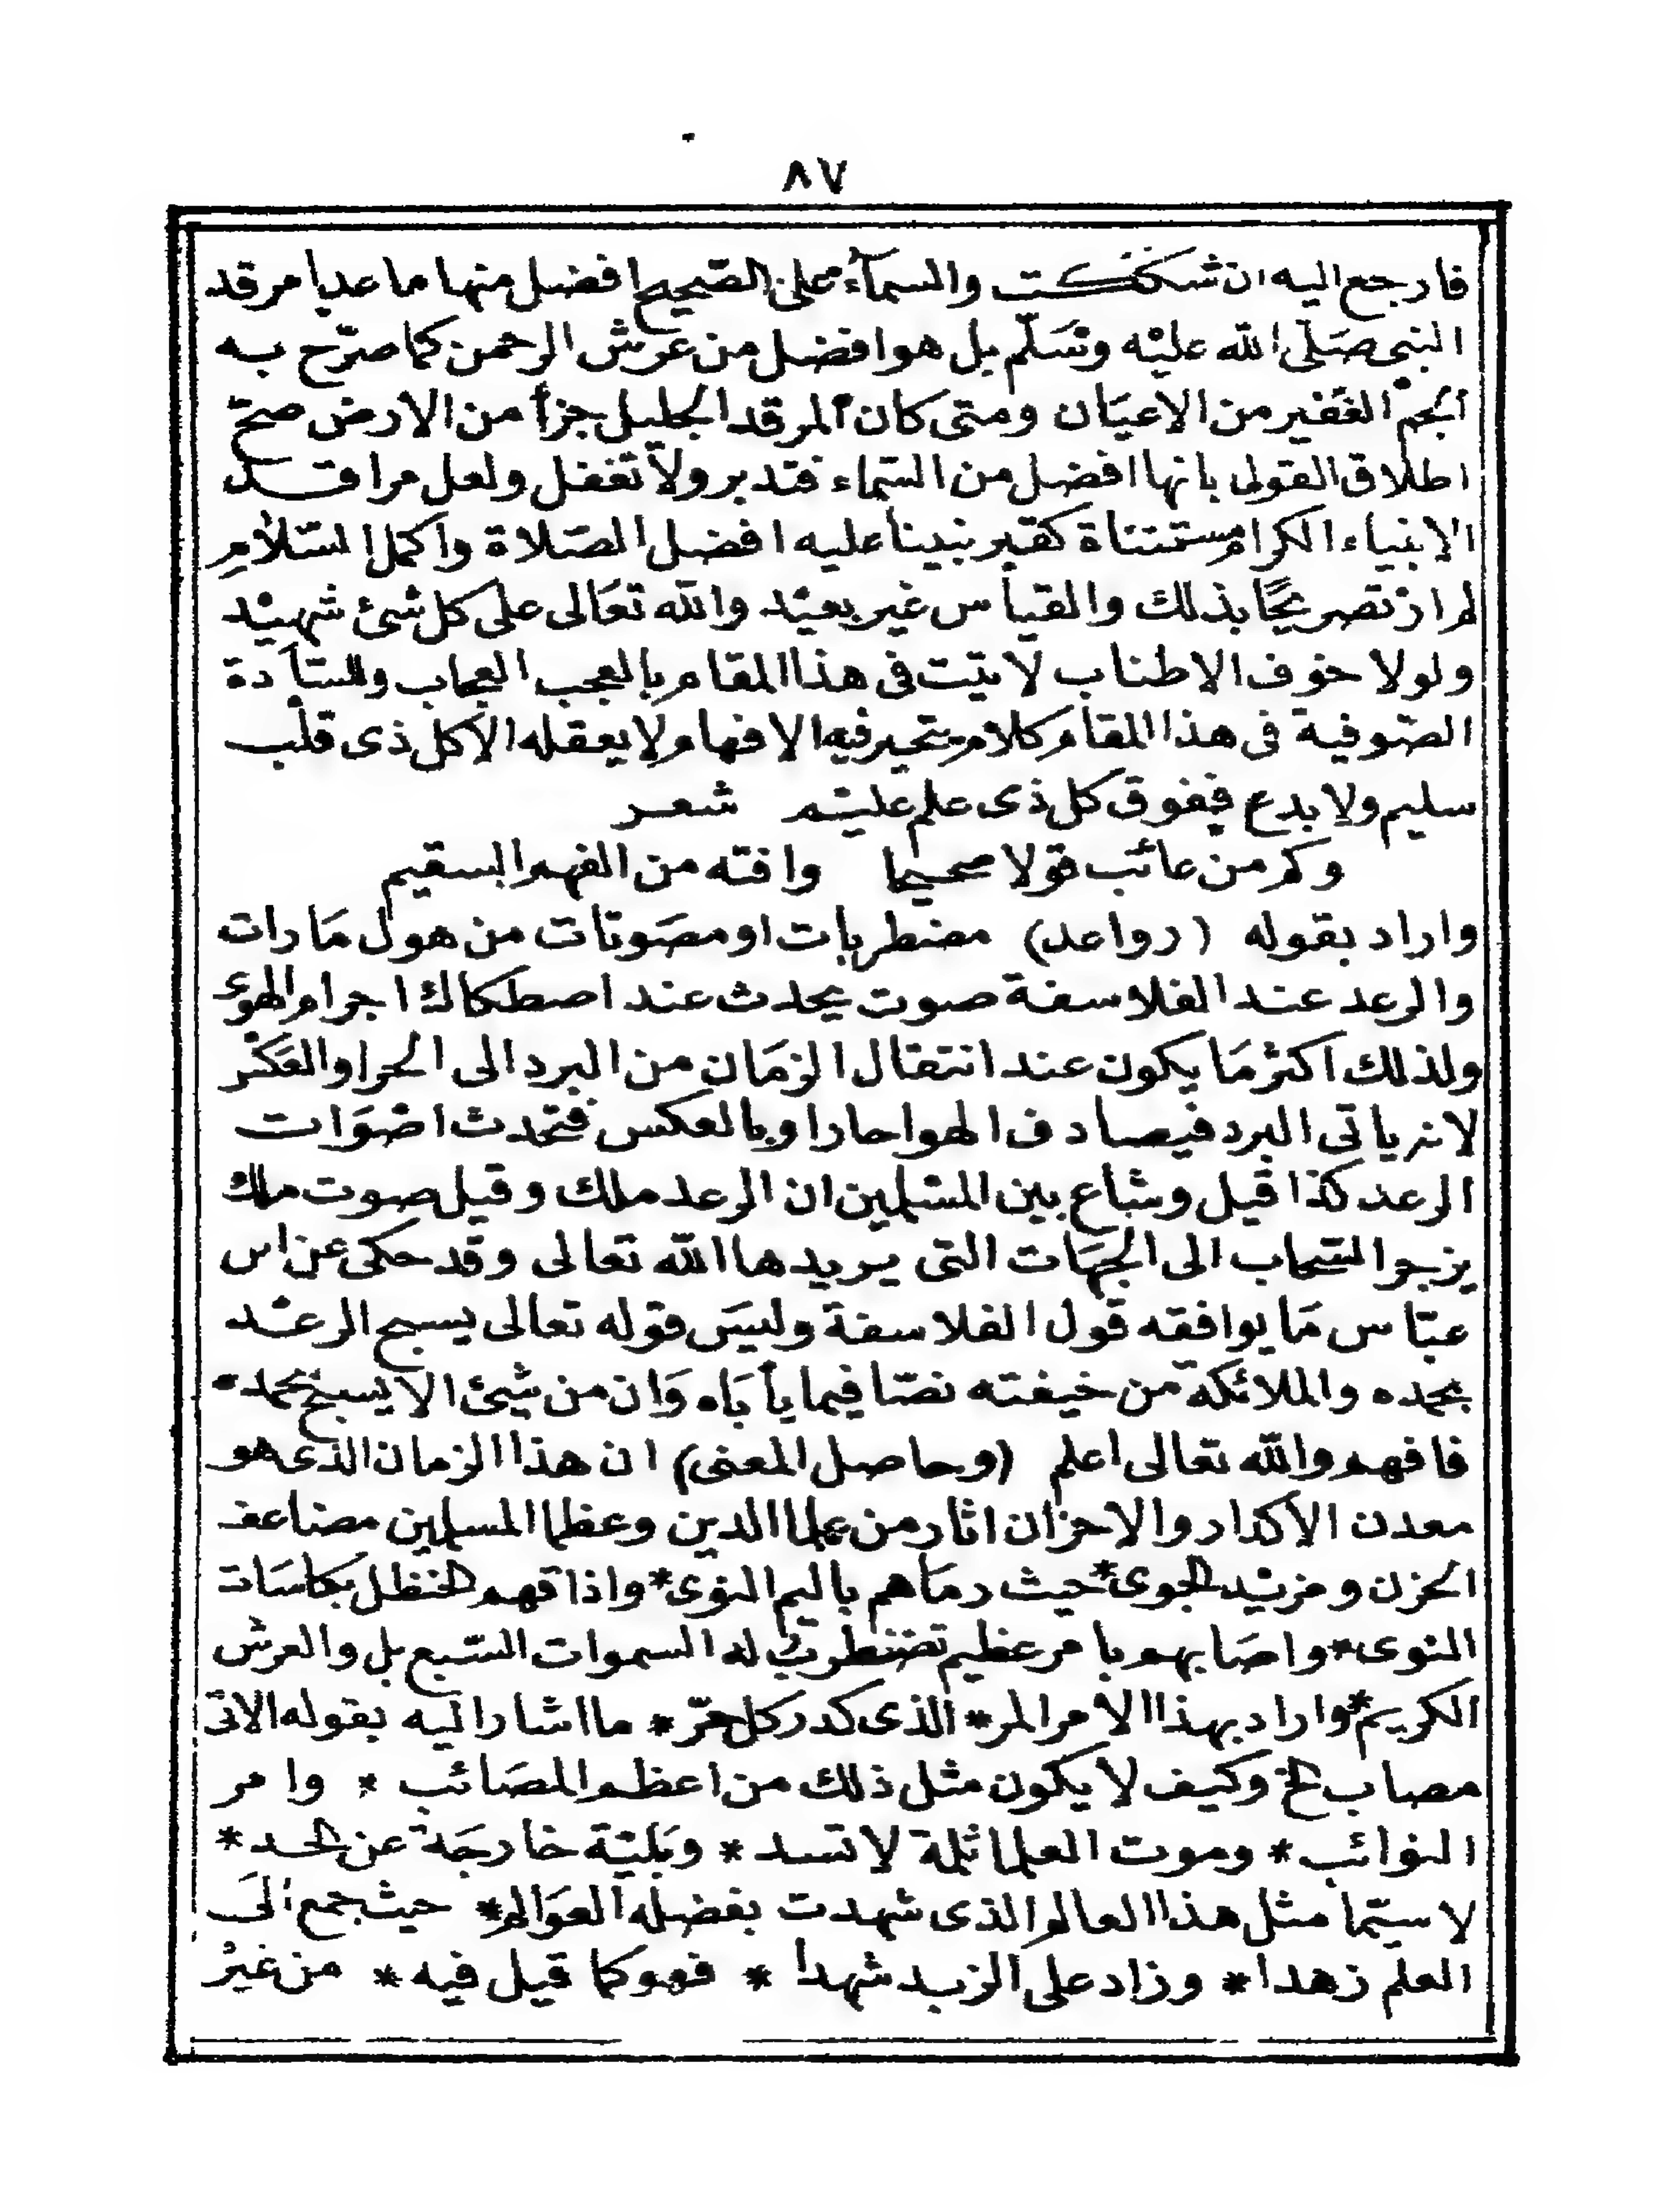 ٨٧
فارجع اليه ان شككت والسمآء على الصّحيح افضل منها ما عدا مرقد
النبى صَلّى الله عليْه وسَلّم بل هو افضل من عرش الرحمن كما صرّح به
الجم الغفير من الاعيَان ومتى كان المرقد الجليل جزأ من الارض صحّ
اطلاق القول بانها افضل من السّماء فتدبر ولا تغفل ولعل مراقد
الانبياء الكرام مستثناة كقبر نبينا عليه افضل الصّلاة واكمل السّلام
لم ار تصريحًا بذلك والقياس غير بعيْد والله تعَالى على كل شئ شهيْد
ولولا خوف الاطناب لاتيت فى هذا المقام بالعجب العجاب وللسّادة
الصّوفية فى هذا المقام كلام تتحير فيه الافهام ولا يعقله الا كل ذى قلب
سليم ولا بدع ففوق كل ذى علم عليم شعر
وكم من عائب قولا صحيحا وافته من الفهم السقيم
واراد بقوله (رواعد) مضطربات او مصَوتات من هول مَا رات
والرعد عند الفلاسفة صوت يحدث عند اصطكاك اجرام الهوء
ولذلك اكثر مَا يكون عند انتقال الزمَان من البرد الى الحر او العَكْس
لانه ياتى البرد فيصادف الهوا حارا وبالعكس فتحدث اصْوَات
الرعد كذا قيل وشاع بين المسْلمين ان الرعد ملك وقيل صوت ملك
يزجر السّحاب الى الجهَات التى يريدها الله تعالى وقد حكى عن اس
عبّاس مَا يوافقه قول الفلاسفة وليسَ قوله تعالى يسبح الرعْد
بحمده والملائكة من خيفته نصّا فيما يأبَاه وَان من شئ الا يسبح بحمده
فافهم والله تعالى اعلم (وحاصل المعنى) ان هذا الزمان الذى هو
معدن الاكدار والاحزان اثار من علما الدين وعظما المسلمين مضاعف
الحزن ومزيْد الجوى* حيث رمَاهم باليم النوى* واذاقهم الحنظل بكاسَات
النوى* واصَابهم بامر عظيم تضطرب له السموات السّبع بل والعرش
الكريم* واراد بهذا الامر المر* الذى كدر كل حرّ* ما اشار اليه بقوله الاتى
مصاب الخ وكيف لا يكون مثل ذلك من اعظم المصَائب * وامر
النوائب* وموت العلما ثلمة لا تسد* وبَليّة خارجَة عن الحد*
لا سيّما مثل هذا العالم الذى شهدت بفضله العوَالم* حيث جمع الَى
العلم زهدا* وزاد على الزبد شهدا * فهو كما قيل فيه* من غيْر